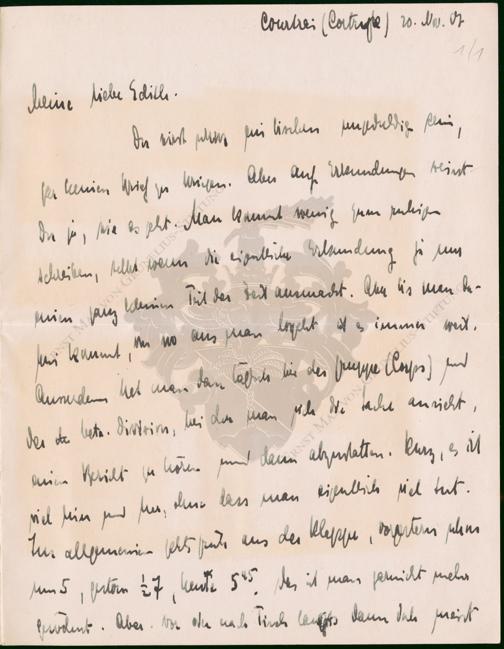 Courtrai (Cortryk) 20. Nov. 17
1/1
Meine liebe Edith.
Du wirst schon ein bischen ungeduldig sein,
gar keinen Brief zu kriegen. Aber auf Erkundungen weisst
Du ja, wie es geht. Man kommt wenig zum ruhigen
schreiben, selbst wenn die eigentliche Erkundung ja nur
einen ganz kleinen Teil der Zeit ausmacht. Aber bis man da
hin kommt, von wo aus man losgeht ist es immer weit.
Ausserdem hat man dann täglich bei der Gruppe (Corps) und
der Division, bei der man sich die Sache ansieht,
einen Bericht zu hören und dann abzustatten. Kurz, es ist
viel hin und her, ohne dass man eigentlich viel tut.
Im allgemeinen gehts früh aus der Klappe, vorgestern schon
um 5, gestern ½7, heute 5 45. Das ist man garnicht mehr
gewöhnt. Aber vor oder nach Tisch langts dann doch meist
ERNST MARNO VON STIFTUNG